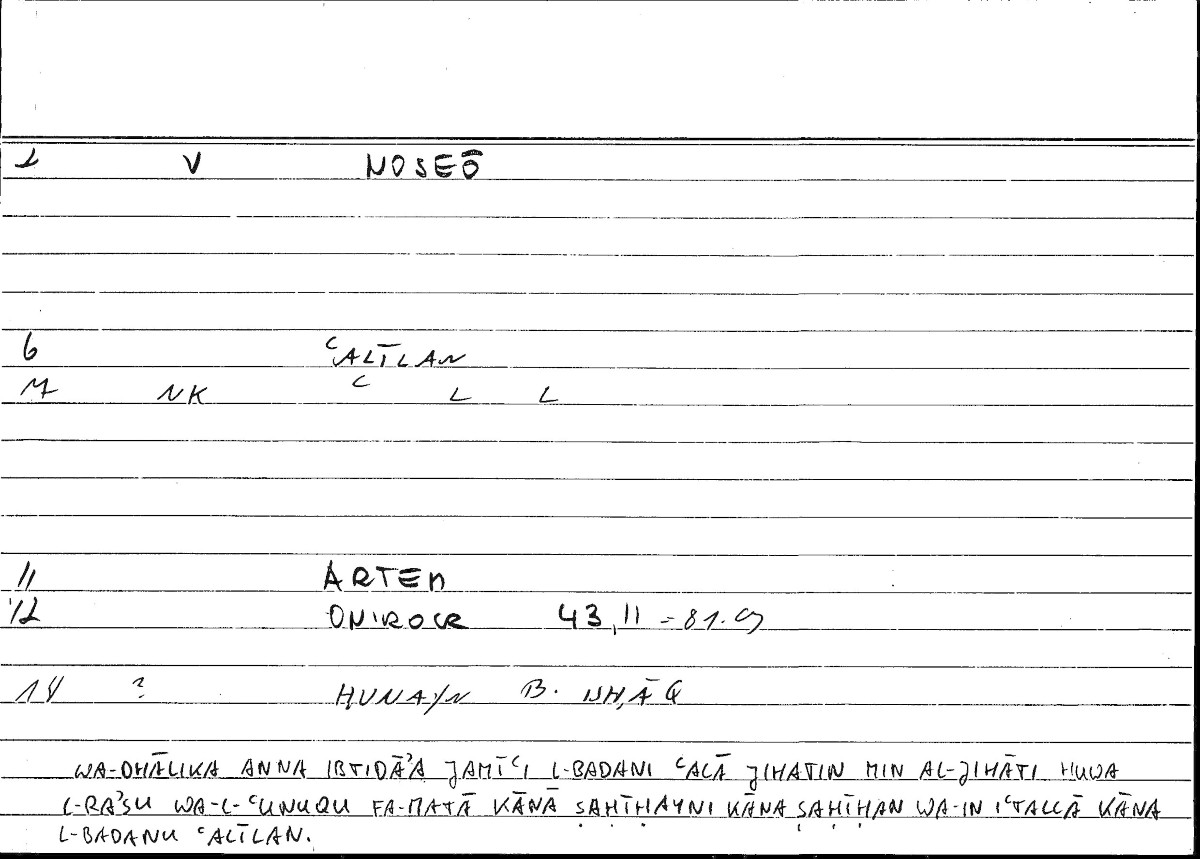 1 V NOSEŌ
6 ʿALĪLAN
M NK ʿ L L
11 ARTEM
12 ONIROCR 43,11 = 81.9
14 ? ḤUNAYN B. ISḤĀQ
WA-DHĀLIKA ANNA IBTIDĀʾA JAMĪʿI L-BADANI ʿALĀ JIHATIN MIN AL-JIHĀTI HUWA
L-RAʾSU WA-L-ʿUNUQU FA-MATĀ KĀNĀ ṢAḤĪḤAYNI KĀNA ṢAḤĪḤAN WA-IN IʿTALLĀ KĀNA
L-BADANU ʿALĪLAN.